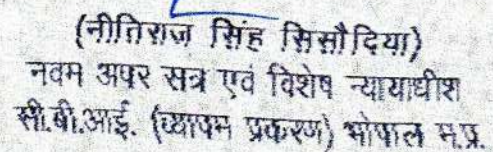 (नीतिराज सिंह सिसौदिया)
नवम अपर सत्र एवं विशेष न्यायाधीश
सी.बी.आई. (व्यापम प्रकरण) भोपाल म.प्र.